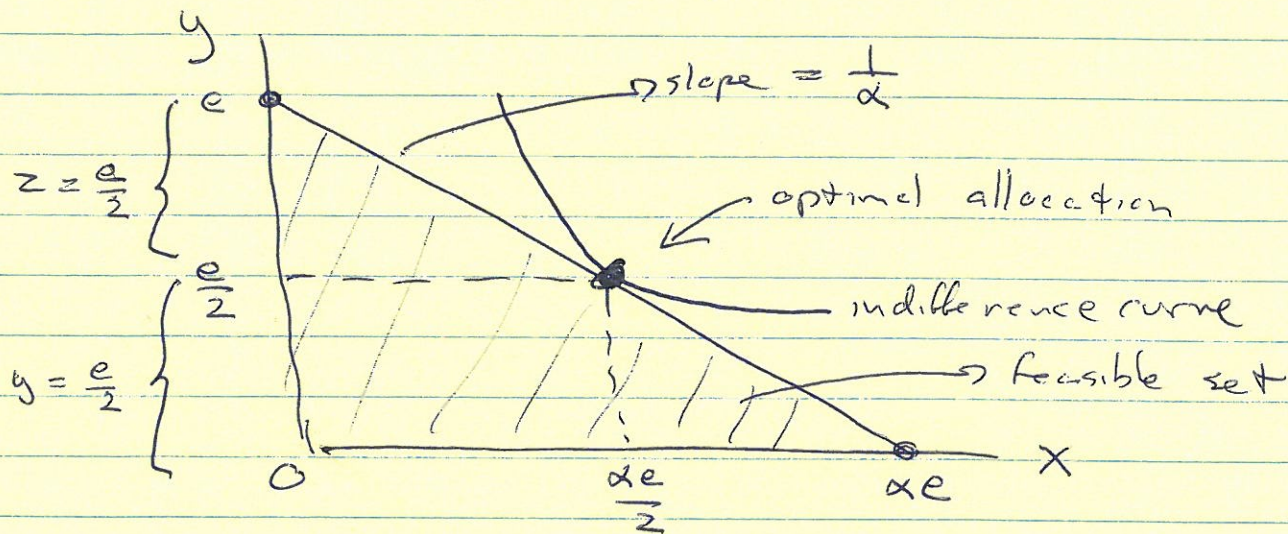 y
slope = 1/α
e
z = e/2
optimal allocation
e/2
indifference curve
y = e/2
feasible set
0
αe/2
αe
X